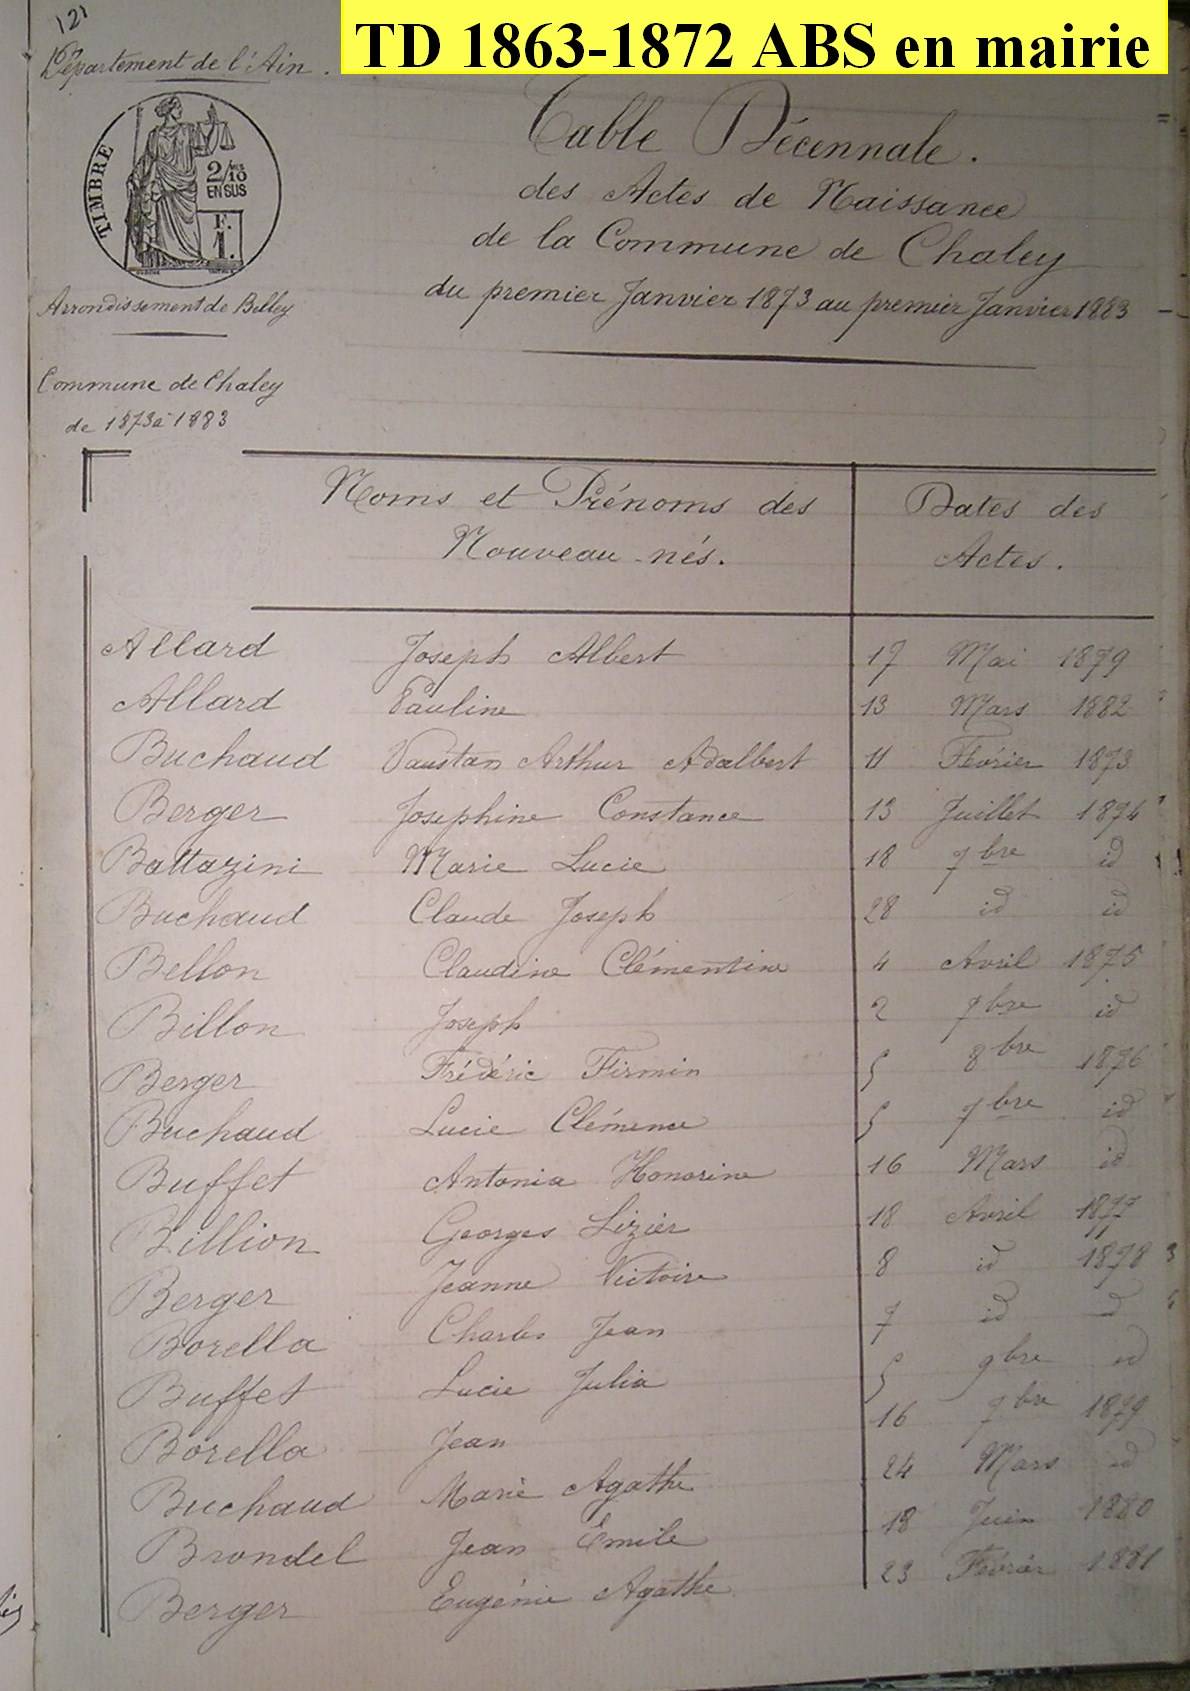 121
TD 1863-1872 ABS en mairie
Département de l'Ain.
TIMBRE
2/10
EN SUS
F.
1.
Table Décennale.
des Actes de Naissance
de la Commune de Chaley
du premier Janvier 1873 au premier Janvier 1883
Arrondissement de Belley
Commune de Chaley
de 1873 à 1883
Noms et Prénoms des Dates des
Nouveau-nés. Actes.
Allard Joseph Albert 17 Mai 1879
Allard Pauline 13 Mars 1882
Buchaud Vaustan Arthur Adalbert 11 Février 1873
Berger Joséphine Constance 13 Juillet 1874
Battazini Marie Lucie 18 7bre id
Buchaud Claude Joseph 28 id id
Bellon Claudine Clémentine 4 Avril 1875
Billon Joseph 2 9bre id
Berger Frédéric Firmin 5 8bre 1876
Buchaud Lucie Clémence 5 9bre id
Buffet Antonia Honorine 16 Mars id
Billion Georges Lizier 18 Avril 1877
Berger Jeanne Victoire 8 id 1878
Borella Charles Jean 7 id id
Buffet Lucie Julia 5 9bre id
Borella Jean 16 7bre 1879
Buchaud Marie Agathe 24 Mars id
Brondel Jean Emile 18 Juin 1880
Berger Eugénie Agathe 23 Février 1881